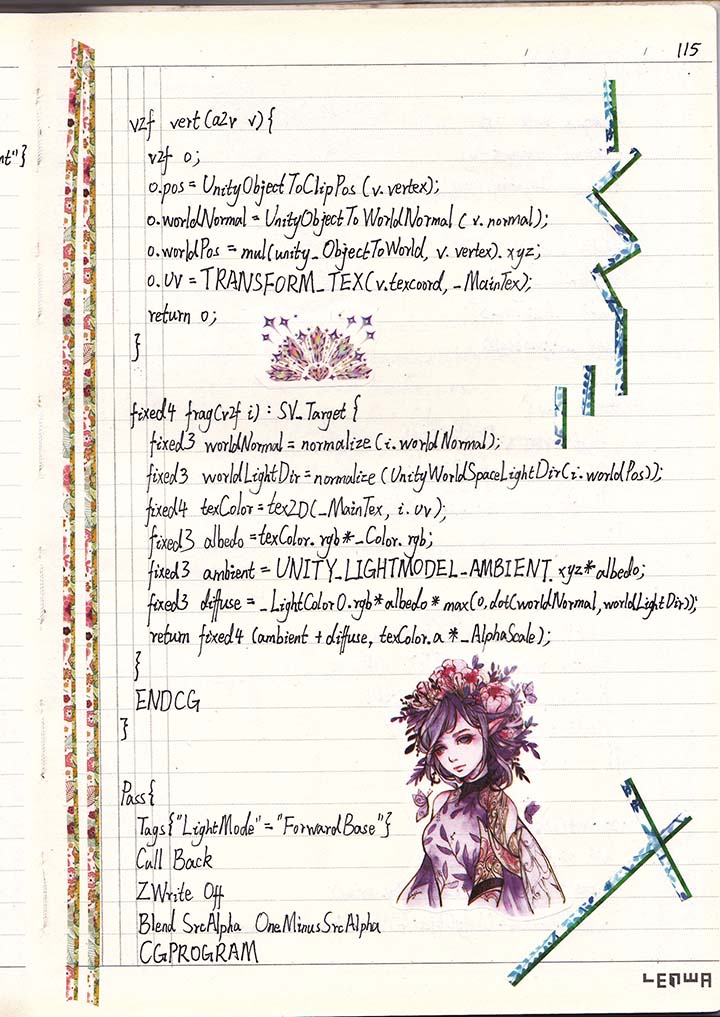 115
nt"}
v2f vert(a2v v){
v2f o;
o.pos = UnityObjectToClipPos(v.vertex);
o.worldNormal = UnityObjectToWorldNormal(v.normal);
o.worldPos = mul(unity_ObjectToWorld, v.vertex).xyz;
o.uv = TRANSFORM_TEX(v.texcoord, _MainTex);
return o;
}
fixed4 frag(v2f i) : SV_Target {
fixed3 worldNormal = normalize(i.worldNormal);
fixed3 worldLightDir = normalize(UnityWorldSpaceLightDir(i.worldPos));
fixed4 texColor = tex2D(_MainTex, i.uv);
fixed3 albedo = texColor.rgb * _Color.rgb;
fixed3 ambient = UNITY_LIGHTMODEL_AMBIENT.xyz * albedo;
fixed3 diffuse = _LightColor0.rgb * albedo * max(0, dot(worldNormal, worldLightDir));
return fixed4(ambient + diffuse, texColor.a * _AlphaScale);
}
ENDCG
}
Pass{
Tags{"LightMode"="ForwardBase"}
Cull Back
ZWrite Off
Blend SrcAlpha OneMinusSrcAlpha
CGPROGRAM
LENWA